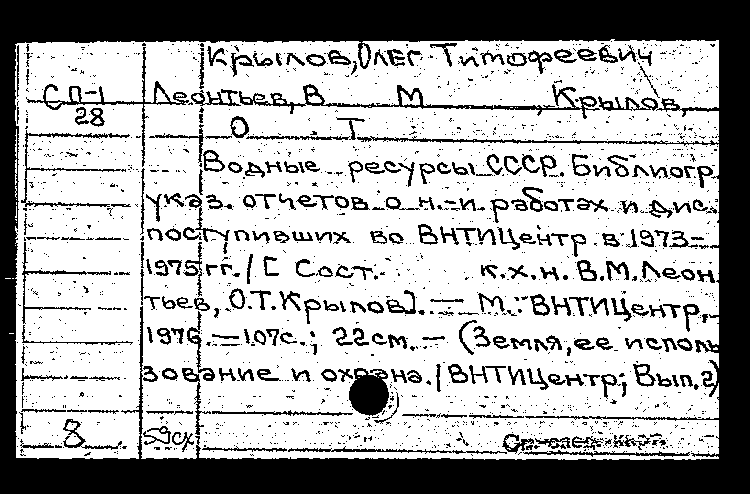 Крылов, Олег Тимофеевич
СП-1 Леонтьев, В М , Крылов,
28 О Т
Водные ресурсы СССР. Библиогр.
указ. отчетов о н.-и. работах и дис.
поступивших во ВНТИЦентр в 1973-
1975 гг. / [ Сост. к.х.н. В.М. Леон
тьев, О.Т. Крылов]. — М.: ВНТИЦентр,
1976. — 107с.; 22см. — (Земля, ее исполь
зование и охрана. / ВНТИЦентр; Вып. 2)
8 59сх